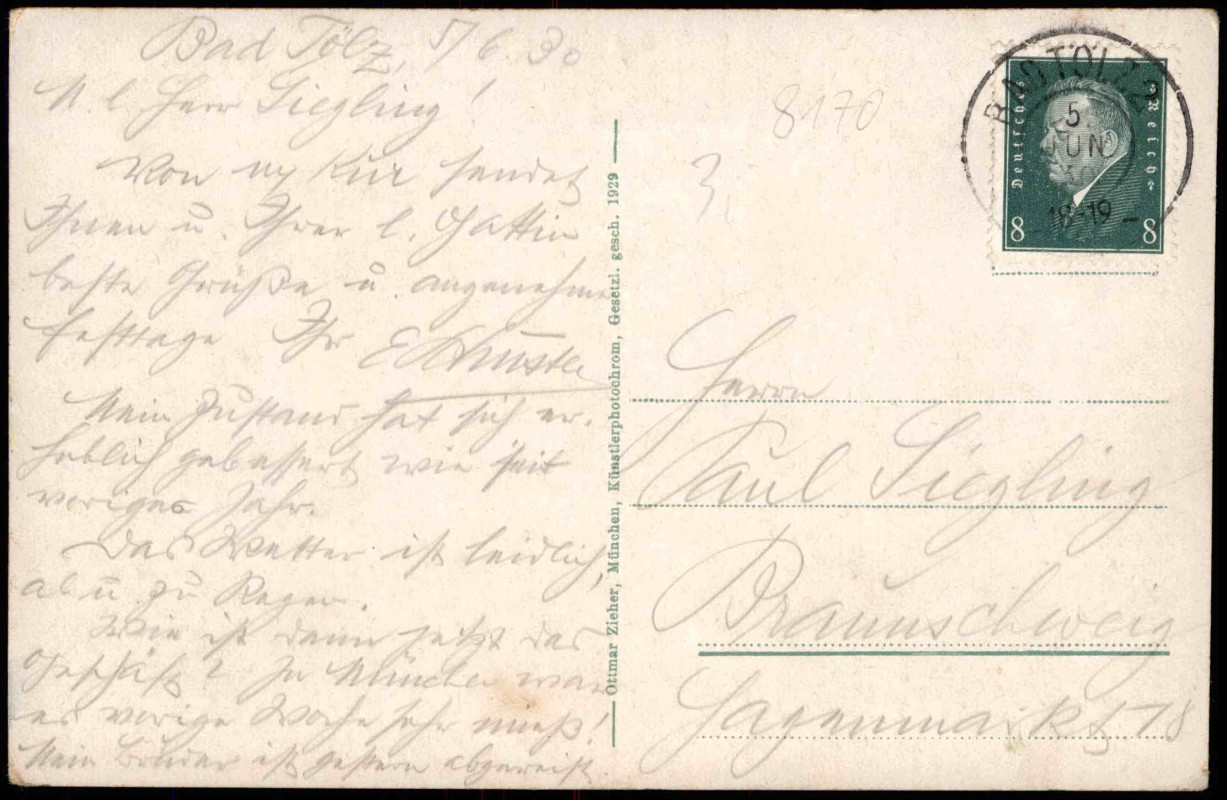 Bad Tölz, 5/6. 30
M. l. Herr Siegling!
Von my Kur sendet
Ihnen u. Ihrer l. Gattin
beste Grüße u. angenehme
Festtage Ihr
Mein Zustand hat sich er-
heblich gebessert wie seit
voriges Jahr.
Das Wetter ist leidlich,
ab u zu Regen.
Wie ist denn jetzt das
Geschäft? In München war
es vorige Woche sehr mieß!
Mein Bruder ist gestern abgereist.
Ottmar Zieher, München, Künstlerphotochrom, Gesetzl. gesch. 1929
8170
3,
BAD TÖLZ
5
JUN
30
18-19
Deutsches Reich
8 8
Herrn
Paul Siegling
Braunschweig
Hagenmarkt 18